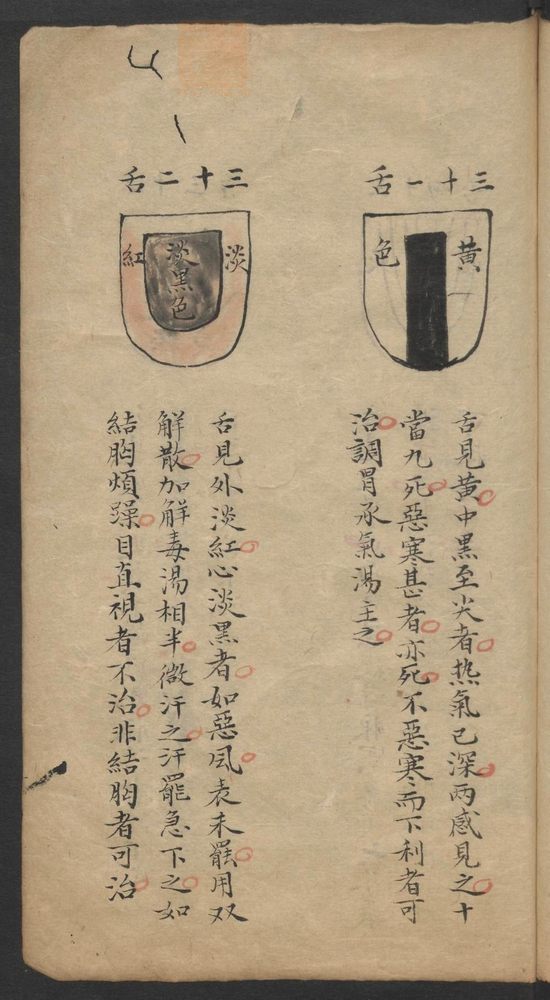 三十一舌
黄色
舌見黄中黒至尖者热氣已深两感見之十
當九死惡寒甚者亦死不惡寒而下利者可
治調胃承氣湯主之
三十二舌
淡紅
淡黒色
舌見外淡紅心淡黒者如惡风表未罷用双
解散加解毒湯相半微汗之汗罷急下之如
結胸煩躁目直視者不治非結胸者可治